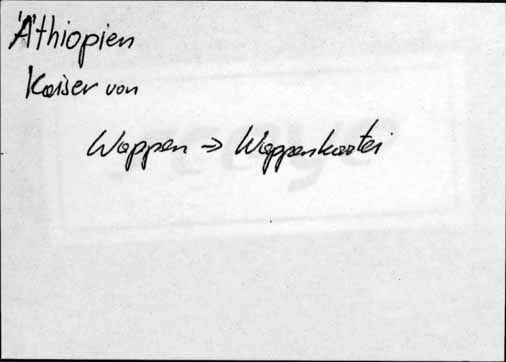 Äthiopien
Kaiser von
Wappen => Wappenkartei